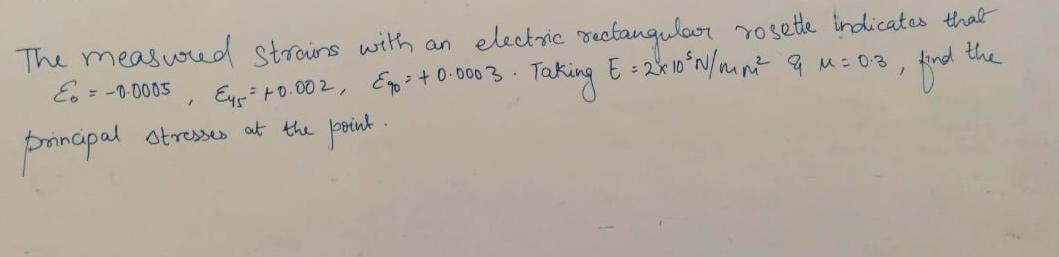 The measured strains with an electric rectangular rosette indicates that
ε₀ = -0.0005 , ε₄₅ = +0.002 , ε₉₀ = +0.0003 . Taking E = 2×10⁵N/mm² & μ = 0.3 , find the
principal stresses at the point .